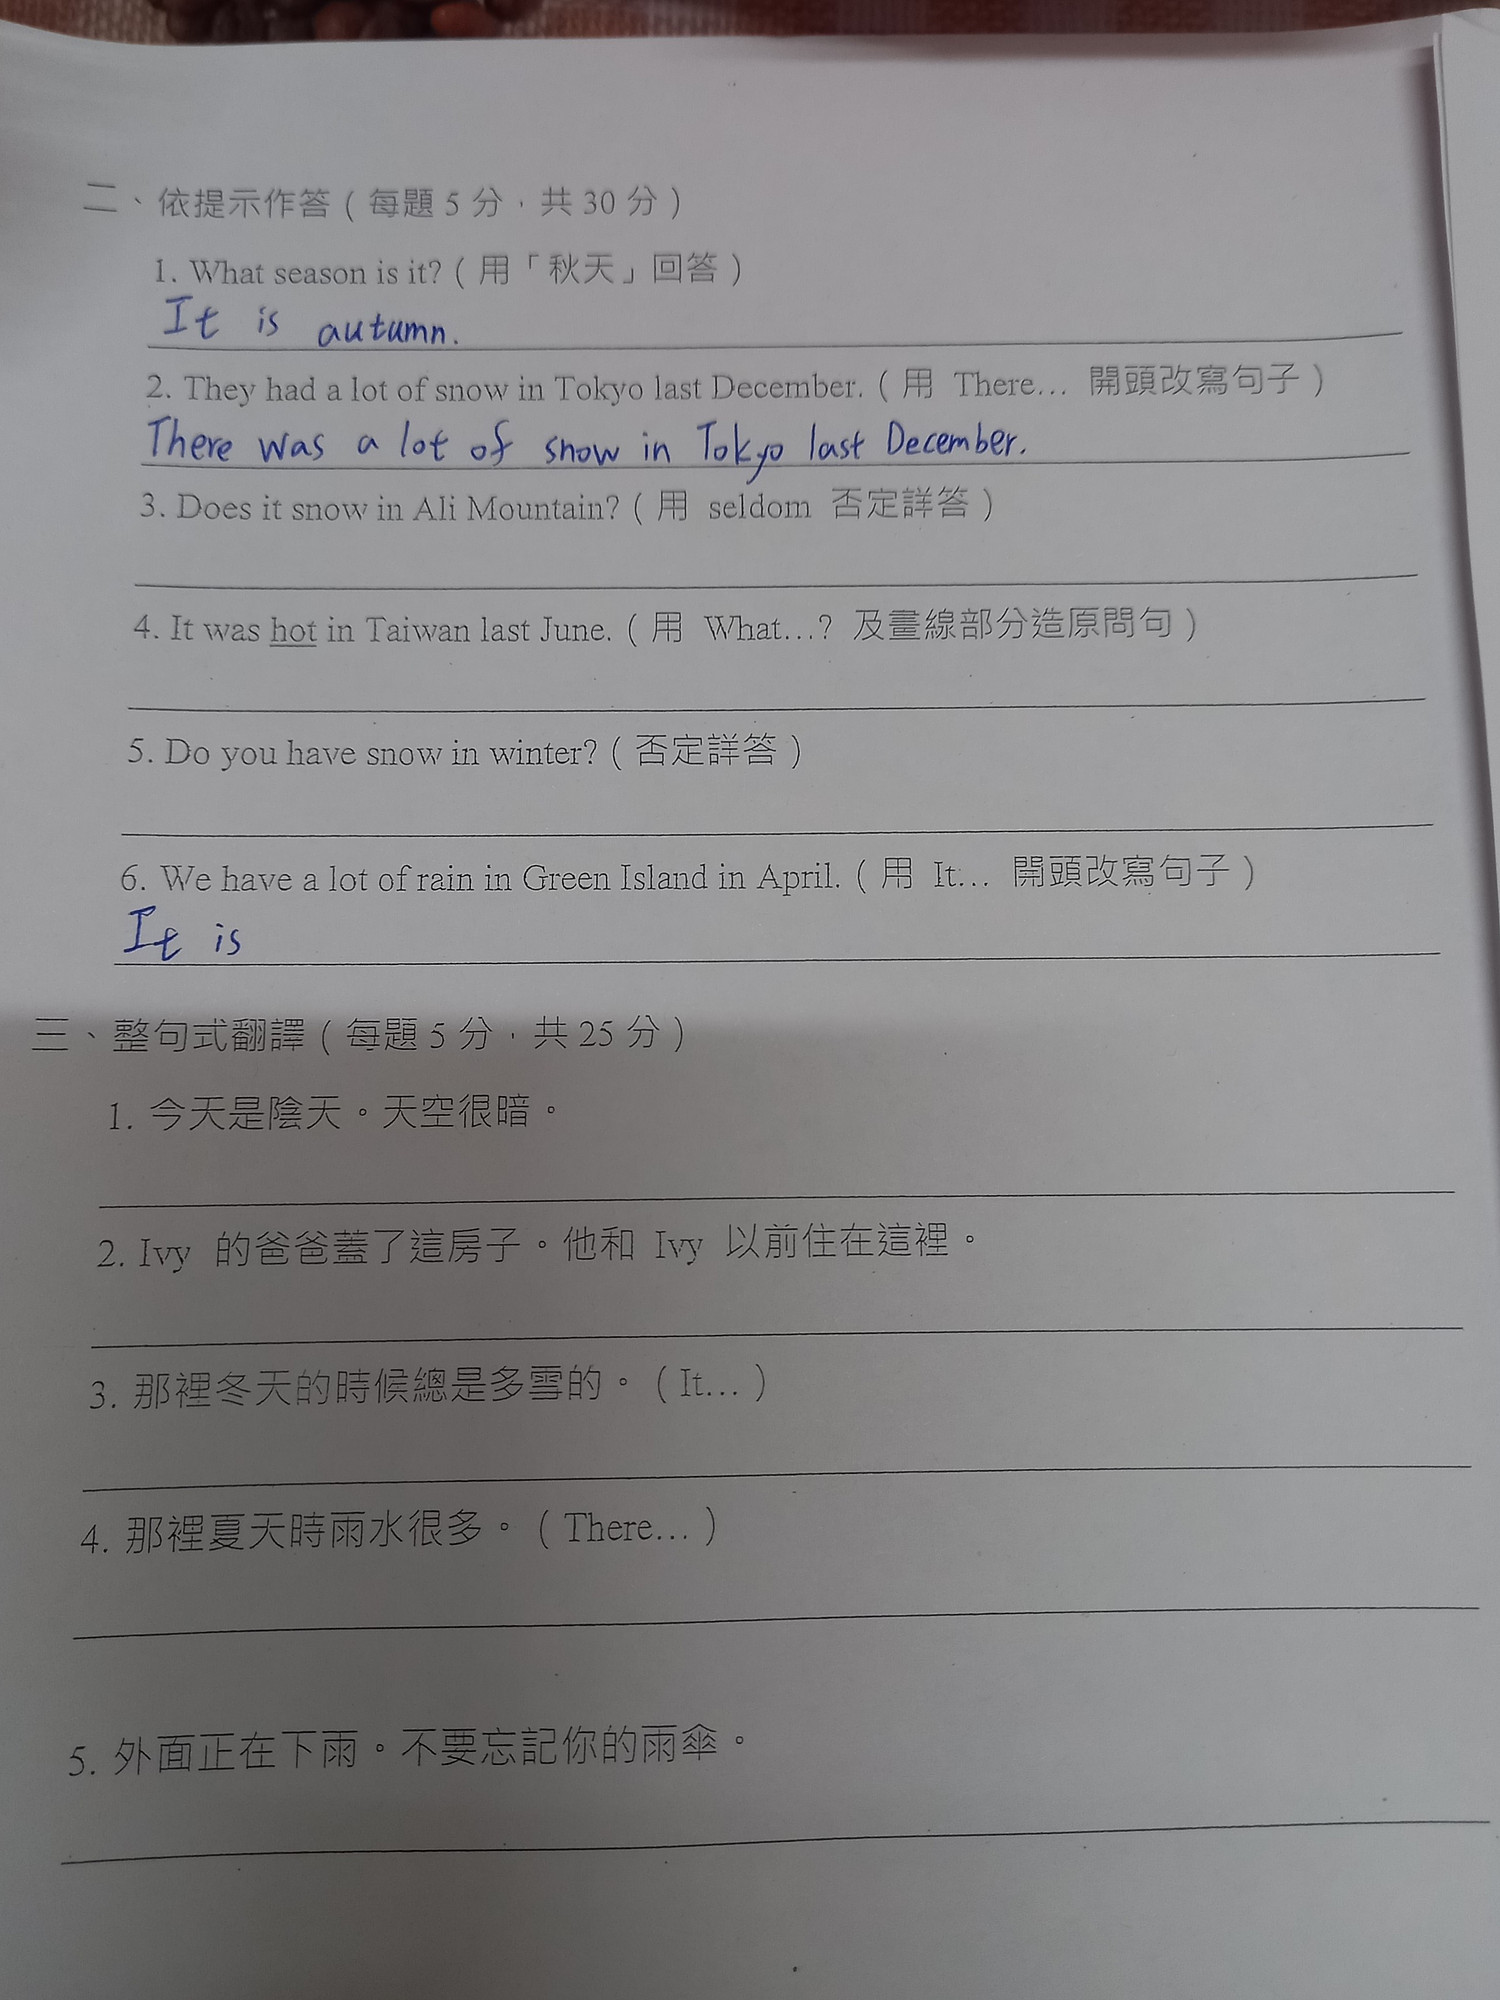 二、依提示作答(每題5分,共30分)
1. What season is it?(用「秋天」回答)
It is autumn.
2. They had a lot of snow in Tokyo last December.(用 There… 開頭改寫句子)
There was a lot of snow in Tokyo last December.
3. Does it snow in Ali Mountain?(用 seldom 否定詳答)
4. It was hot in Taiwan last June.(用 What…? 及畫線部分造原問句)
5. Do you have snow in winter?(否定詳答)
6. We have a lot of rain in Green Island in April.(用 It… 開頭改寫句子)
It is
三、整句式翻譯(每題5分,共25分)
1. 今天是陰天。天空很暗。
2. Ivy 的爸爸蓋了這房子。他和 Ivy 以前住在這裡。
3. 那裡冬天的時候總是多雪的。(It…)
4. 那裡夏天時雨水很多。(There…)
5. 外面正在下雨。不要忘記你的雨傘。